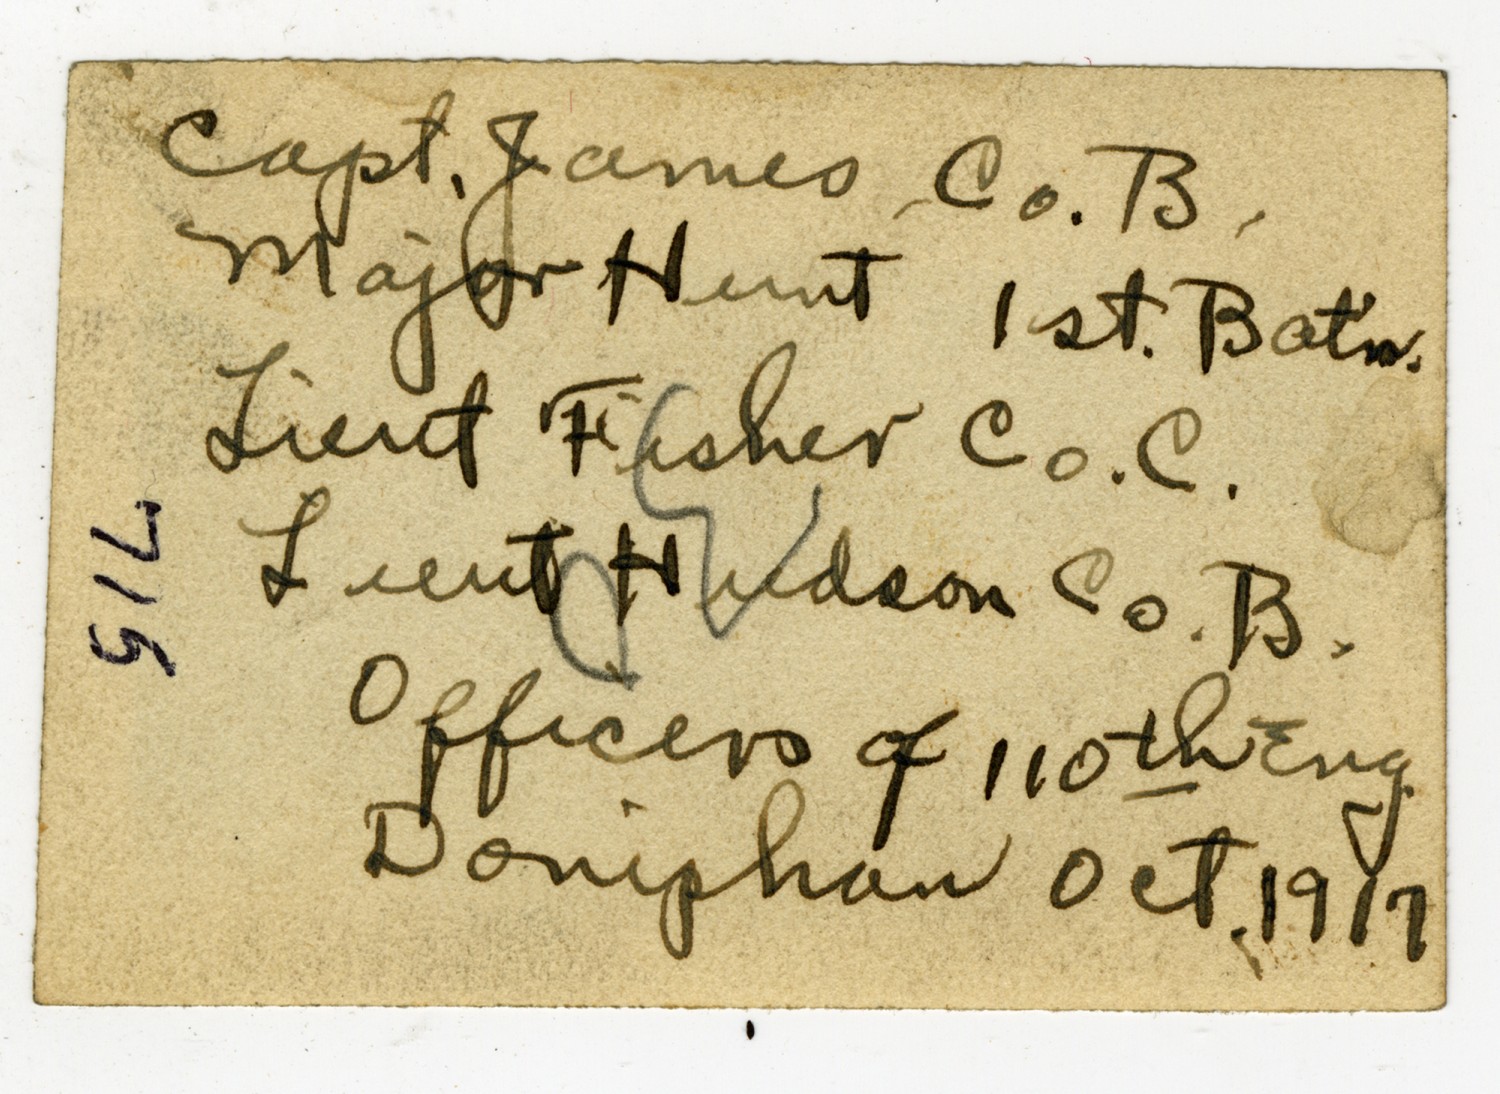 Capt. James Co. B.
Major Hunt 1st. Bat'n.
Lieut Fisher Co. C.
Lieut Hudson Co. B.
Officers of 110th Eng
Doniphan Oct. 1917
715